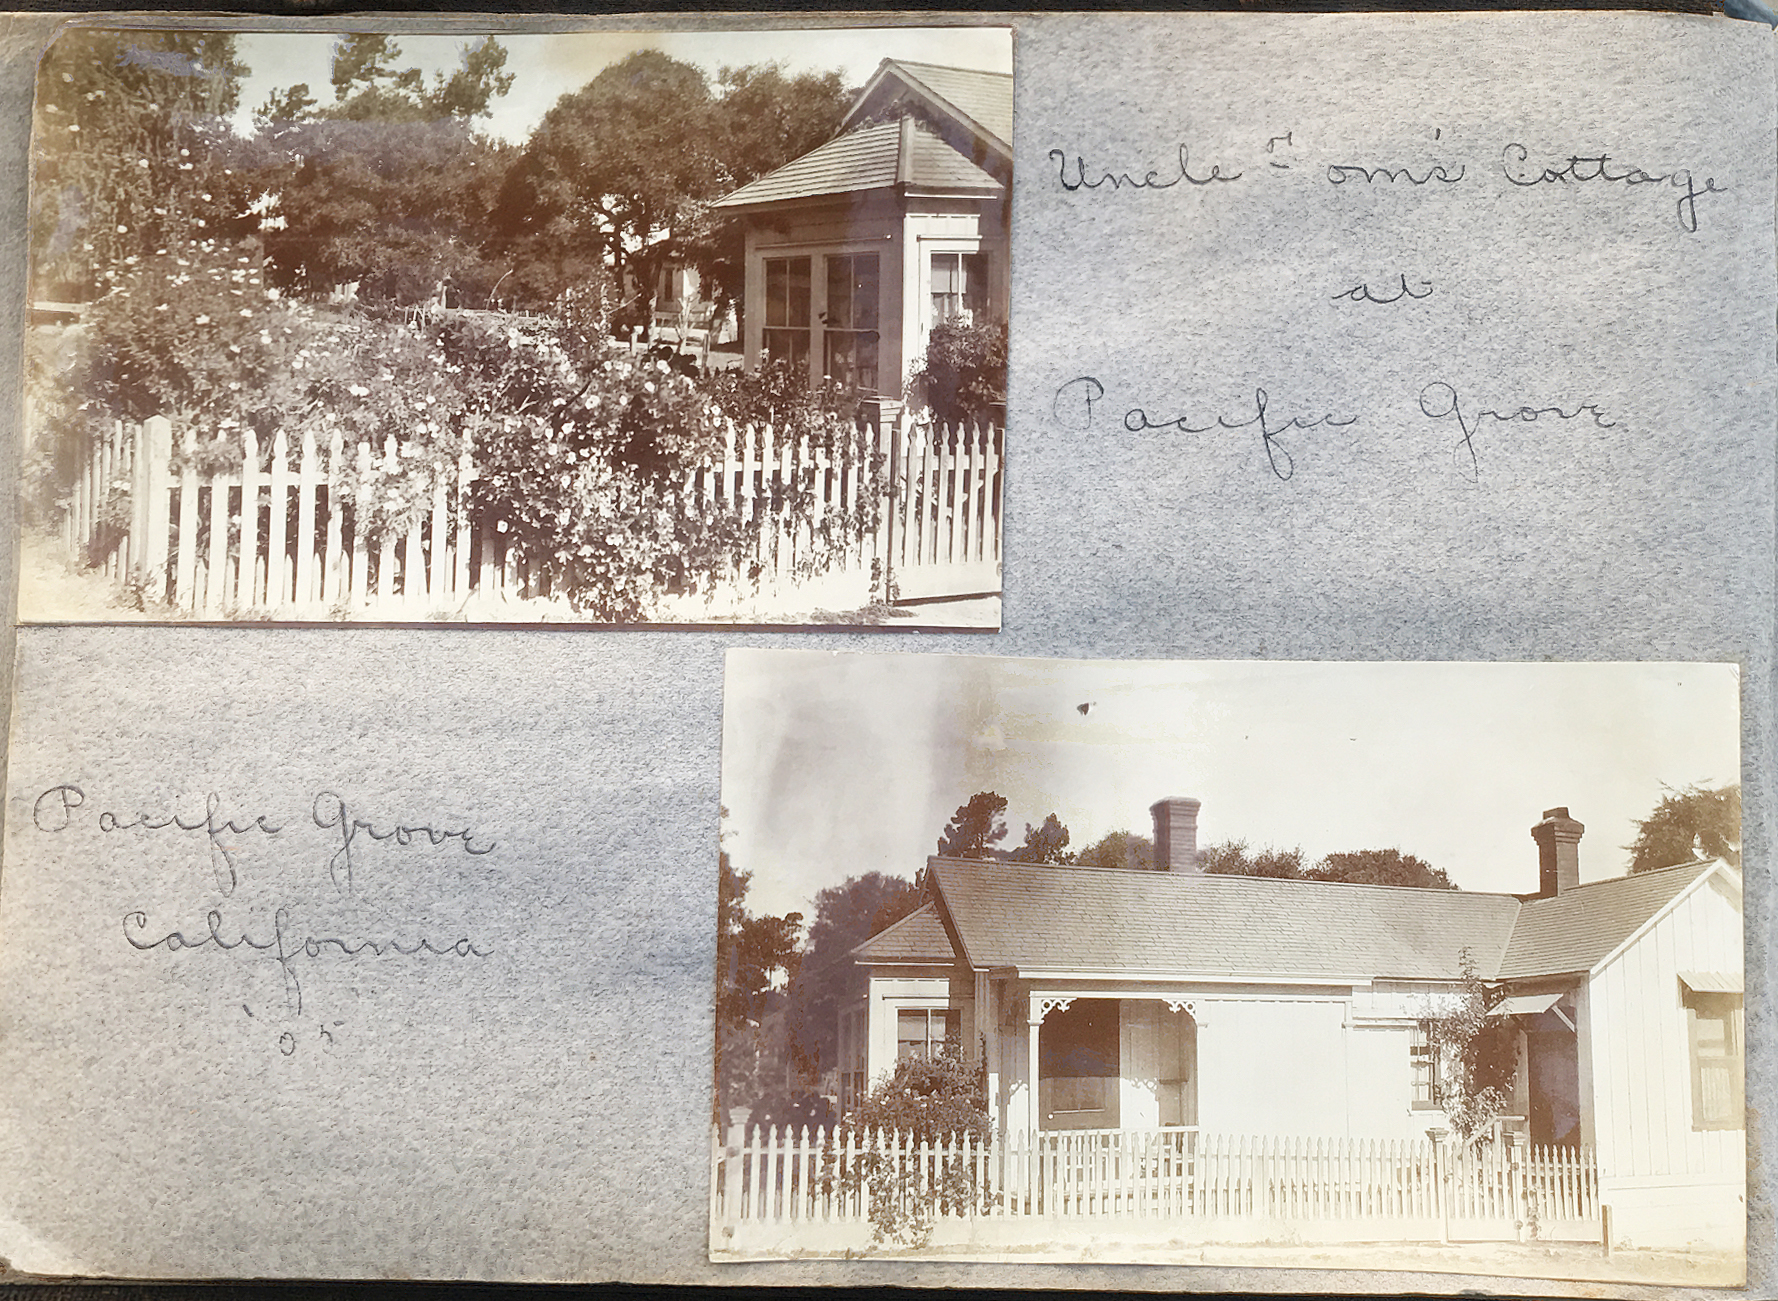 Uncle Tom's Cottage
at
Pacific Grove
Pacific Grove
California
'05